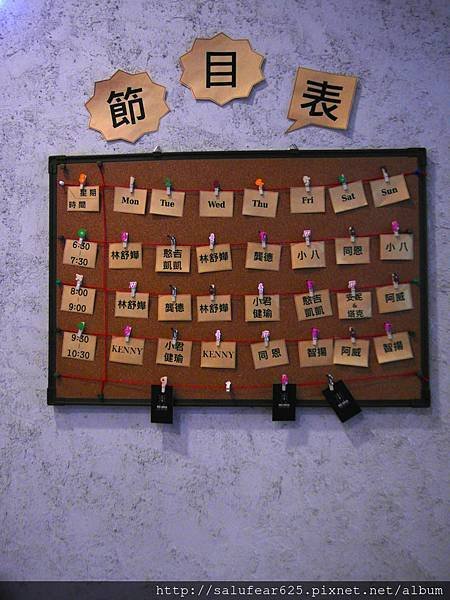 節目表
星期 Mon Tue Wed Thu Fri Sat Sun
時間
6:30 林舒嬅 憨吉 林舒嬅 龔德 小八 同恩 小八
7:30 凱凱
8:00 林舒嬅 龔德 林舒嬅 小君 憨吉 阿威
9:00 健瑜 凱凱 & 塔克
9:30 KENNY 小君 KENNY 同恩 智揚 阿威 智揚
10:30 健瑜
http://salufear625.pixnet.net/album